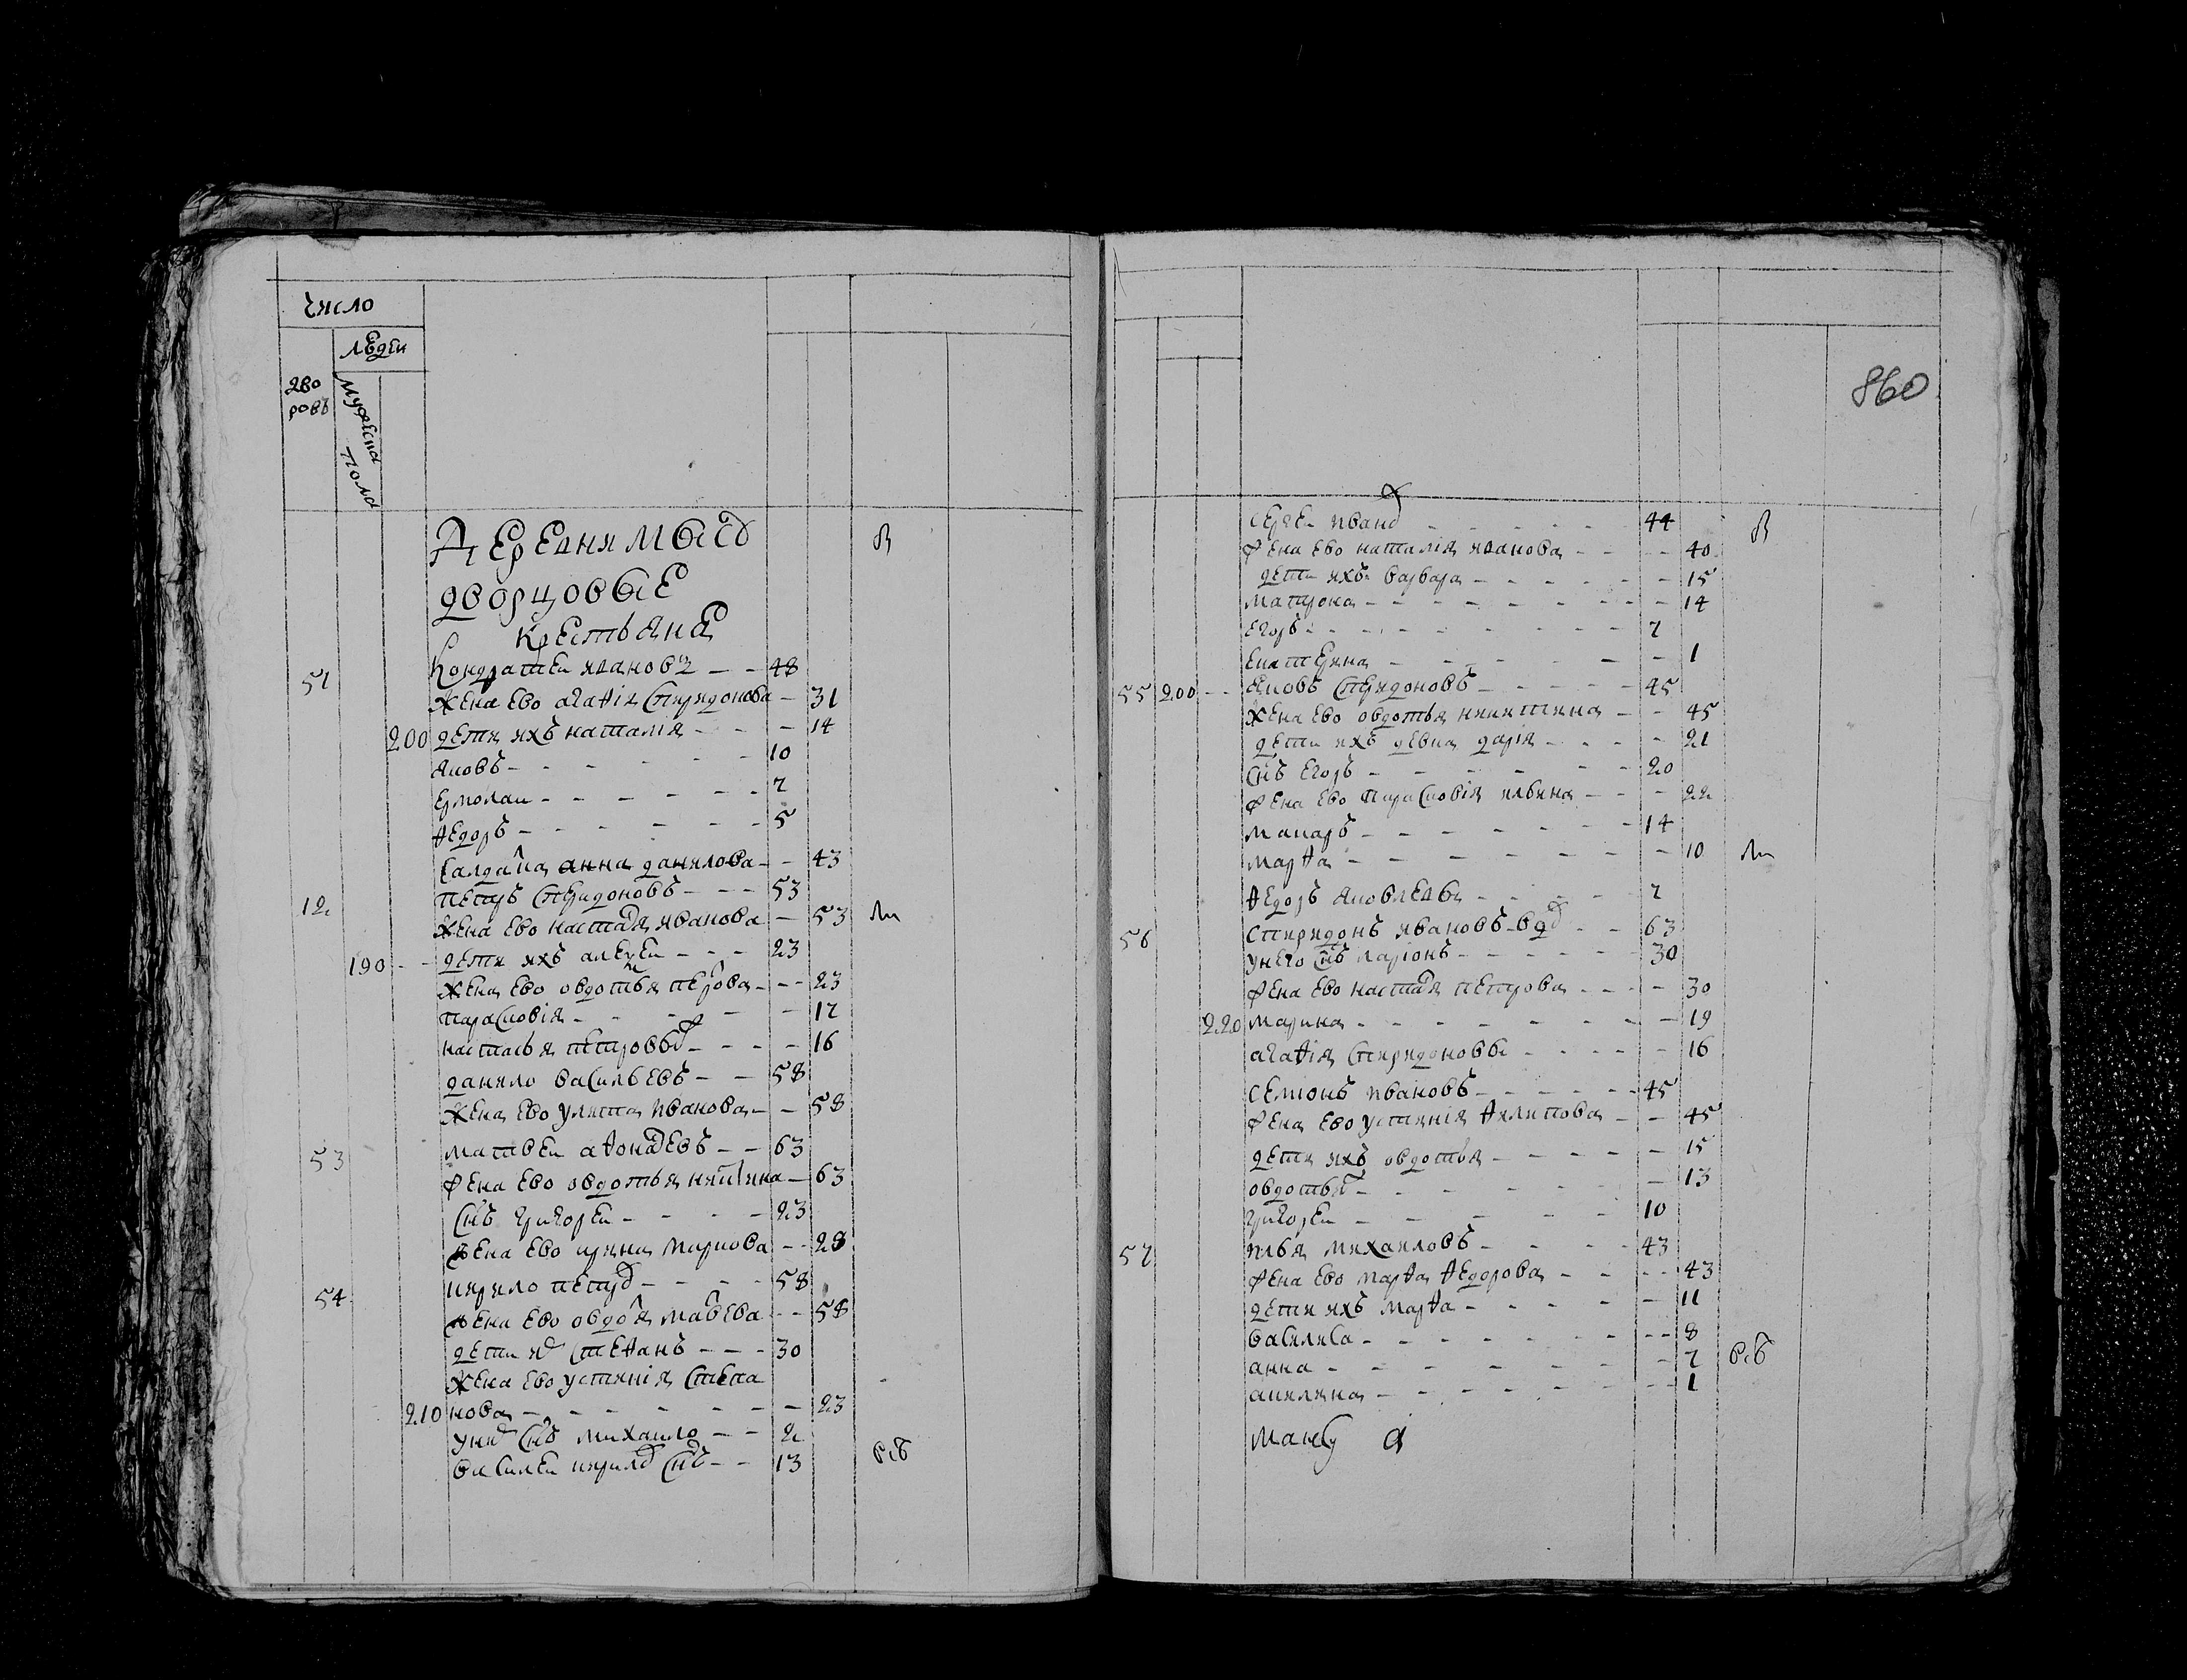 число
людеи
дво
ровъ
мужеска
пола
Деревня Мыс
дворцовые
крестьяне
51 Кондратеи ивановъ - - 48
жена ево агаѳiя спиридонова - 31
200 дети ихъ наталiя - - - 14
яковъ - - - - - - 10
ермолаи - - - - - - 7
ѳедоръ - - - - - - 5
салдатка анна данилова - - 43
12 петръ спиридоновъ - - - 53
жена ево настася иванова - 53
190 - - дети ихъ алексеи - - - 23
жена ево овдотья петрова - - - 23
парасковiя - - - - - 17
настасья петровы - - - - 16
данило васильевъ - - 58
жена ево улита иванова - - 58
53 матвеи аѳонасевъ - - 63
жена ево овдотья никитина - 63
снъ григореи - - - - 23
жена ево ирина маркова - - 28
54 кирило петров - - - - 58
жена ево овдотя матвева - - 58
дети их стеѳанъ - - - 30
жена ево устинiя степа
210 нова - - - - - - - - 23
у них снъ михаило - - 2
василеи кирилов снъ - - 13
860
сергеи иванов - - - - - 44
жена ево наталiя иванова - - - - 40
дети ихъ варвара - - - - - - 15
матрона - - - - - - - - - 14
егоръ - - - - - - - - 7
екатерина - - - - - - 1
55 200 - - яковъ спиридоновъ - - - - - 45
жена ево овдотья никитина - - 45
дети ихъ девка дарiя - - - - 21
снъ егоръ - - - - - - 20
жена ево парасковiя ильина - - - 22
макаръ - - - - - - - 14
марѳа - - - - - - - - 10
ѳедоръ яковлевы - - - - - 7
56 спиридонъ ивановъ вдв - - 63
у него снъ ларiонъ - - - - - - 30
жена ево настася петрова - - - - 30
220 марина - - - - - - - - 19
агаѳiя спиридоновы - - - - - 16
семионъ ивановъ - - - - - - 45
жена ево устинiя ѳилипова - - 45
дети ихъ овдотья - - - - - 15
овдотья - - - - - - 13
григореи - - - - - - 10
57 илья михаиловъ - - - - 43
жена ево марѳа ѳедорова - - - - 43
дети ихъ марѳа - - - - - 11
василиса - - - - - - - - - 8
анна - - - - - - - - 7
акилина - - - - - - - - 1